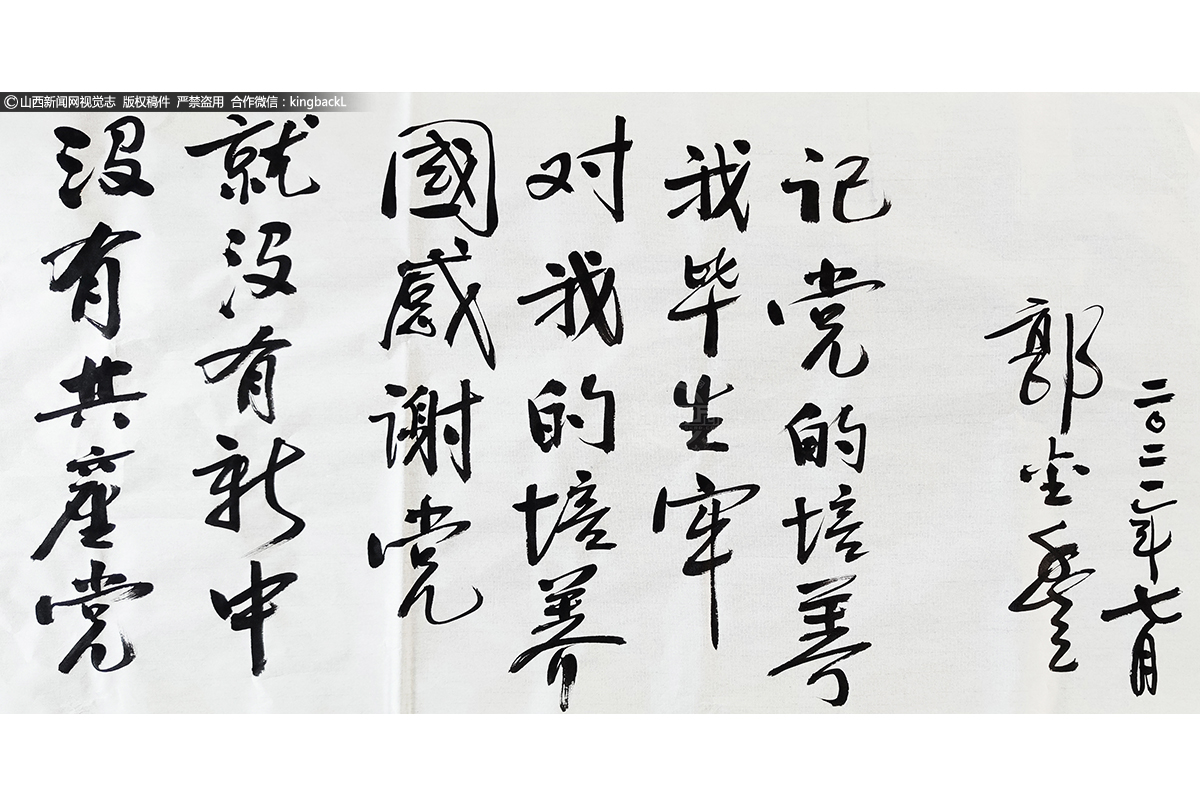 ©山西新闻网视觉志 版权稿件 严禁盗用 合作微信:kingbackL
没有共産党
就没有新中
國感谢党
对我的培养
我毕生牢
记党的培养
郭金
二〇二二年七月